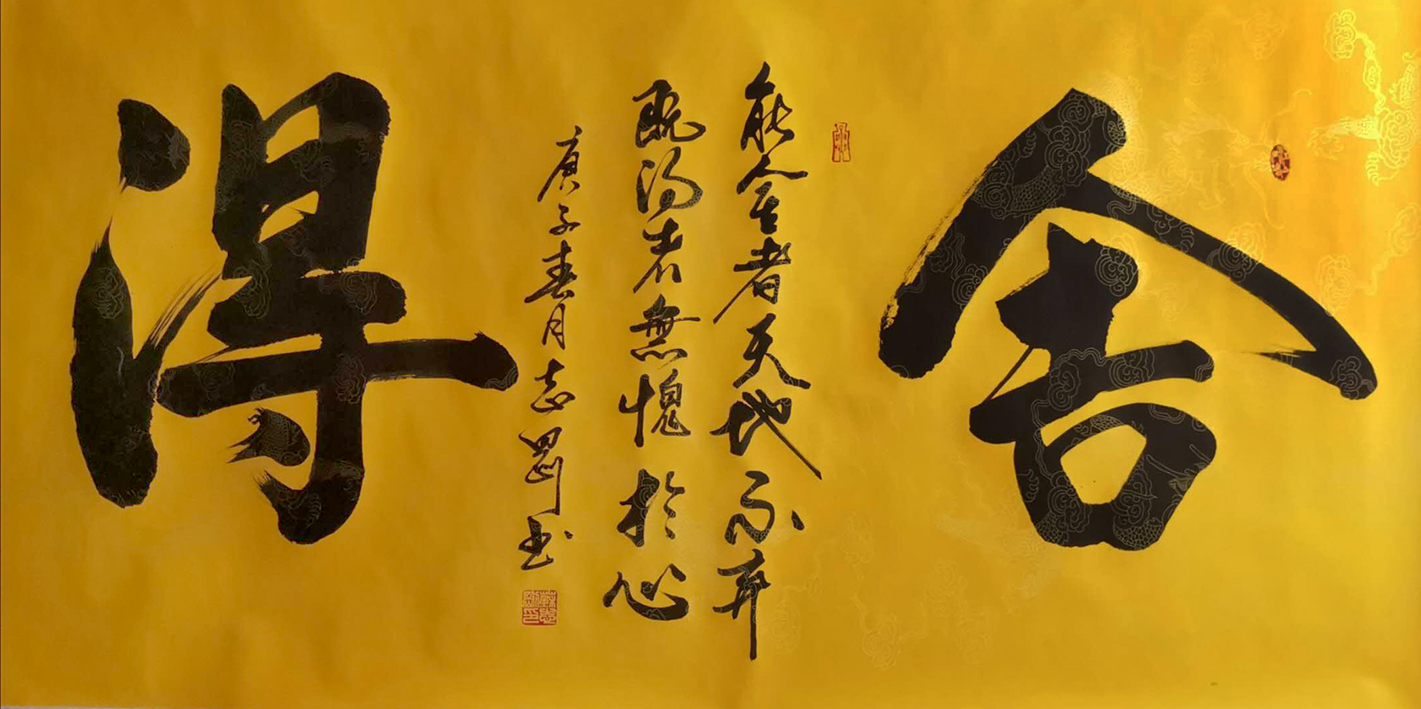 舍
能舍者天地不弃
既得者無愧於心
庚子春月志罡书
得